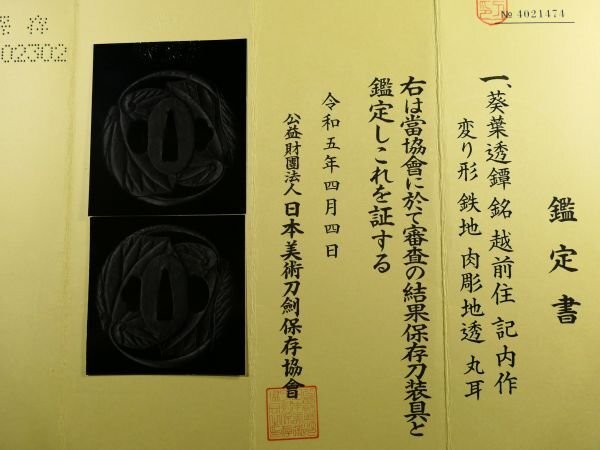 № 4021474
鑑定書
一、葵葉透鐔 銘 越前住 記内作
変り形 鉄地 肉彫地透 丸耳
右は當協會に於て審査の結果保存刀装具と
鑑定しこれを証する
令和五年四月四日
公益財團法人 日本美術刀劍保存協會
02302